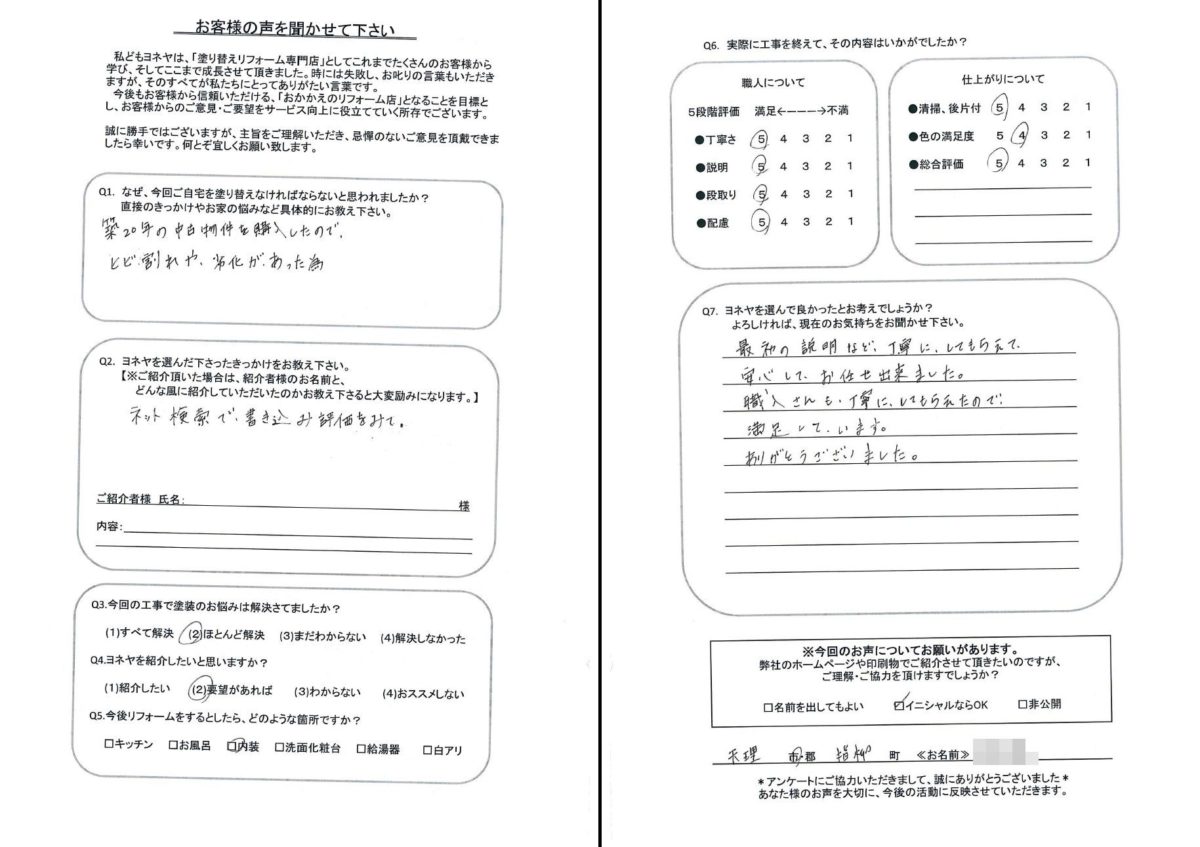 お客様の声を聞かせて下さい
私どもヨネヤは、「塗り替えリフォーム専門店」としてこれまでたくさんのお客様から
学び、そしてここまで成長させて頂きました。時には失敗し、お叱りの言葉もいただき
ますが、そのすべてが私たちにとってありがたい言葉です。
今後もお客様から信頼いただける、「おかかえのリフォーム店」となることを目標と
し、お客様からのご意見・ご要望をサービス向上に役立てていく所存でございます。
誠に勝手ではございますが、主旨をご理解いただき、忌憚のないご意見を頂戴できま
したら幸いです。何とぞ宜しくお願い致します。
Q1. なぜ、今回ご自宅を塗り替えなければならないと思われましたか？
直接のきっかけやお家の悩みなど具体的にお教え下さい。
築20年の中古物件を購入したので、
ヒビ割れや、劣化があった為
Q2. ヨネヤを選んだ下さったきっかけをお教え下さい。
【※ご紹介頂いた場合は、紹介者様のお名前と、
どんな風に紹介していただいたのかお教え下さると大変励みになります。】
ネット検索で、書き込み評価をみて。
ご紹介者様 氏名： 様
内容：
Q3.今回の工事で塗装のお悩みは解決さてましたか？
(1)すべて解決 (2)ほとんど解決 (3)まだわからない (4)解決しなかった
Q4.ヨネヤを紹介したいと思いますか？
(1)紹介したい (2)要望があれば (3)わからない (4)おススメしない
Q5.今後リフォームをするとしたら、どのような箇所ですか？
□キッチン □お風呂 ☑内装 □洗面化粧台 □給湯器 □白アリ
Q6. 実際に工事を終えて、その内容はいかがでしたか？
職人について
5段階評価 満足←−−−−→不満
●丁寧さ 5 4 3 2 1
●説明 5 4 3 2 1
●段取り 5 4 3 2 1
●配慮 5 4 3 2 1
仕上がりについて
●清掃、後片付 5 4 3 2 1
●色の満足度 5 4 3 2 1
●総合評価 5 4 3 2 1
Q7. ヨネヤを選んで良かったとお考えでしょうか？
よろしければ、現在のお気持ちをお聞かせ下さい。
最初の説明など、丁寧に、してもらえて、
安心して、お任せ出来ました。
職人さんも、丁寧に、してもらえたので
満足しています。
ありがとうございました。
※今回のお声についてお願いがあります。
弊社のホームページや印刷物でご紹介させて頂きたいのですが、
ご理解・ご協力を頂けますでしょうか？
□名前を出してもよい ☑イニシャルならOK □非公開
天理 市・郡 指柳 町 ≪お名前≫
＊アンケートにご協力いただきまして、誠にありがとうございました＊
あなた様のお声を大切に、今後の活動に反映させていただきます。